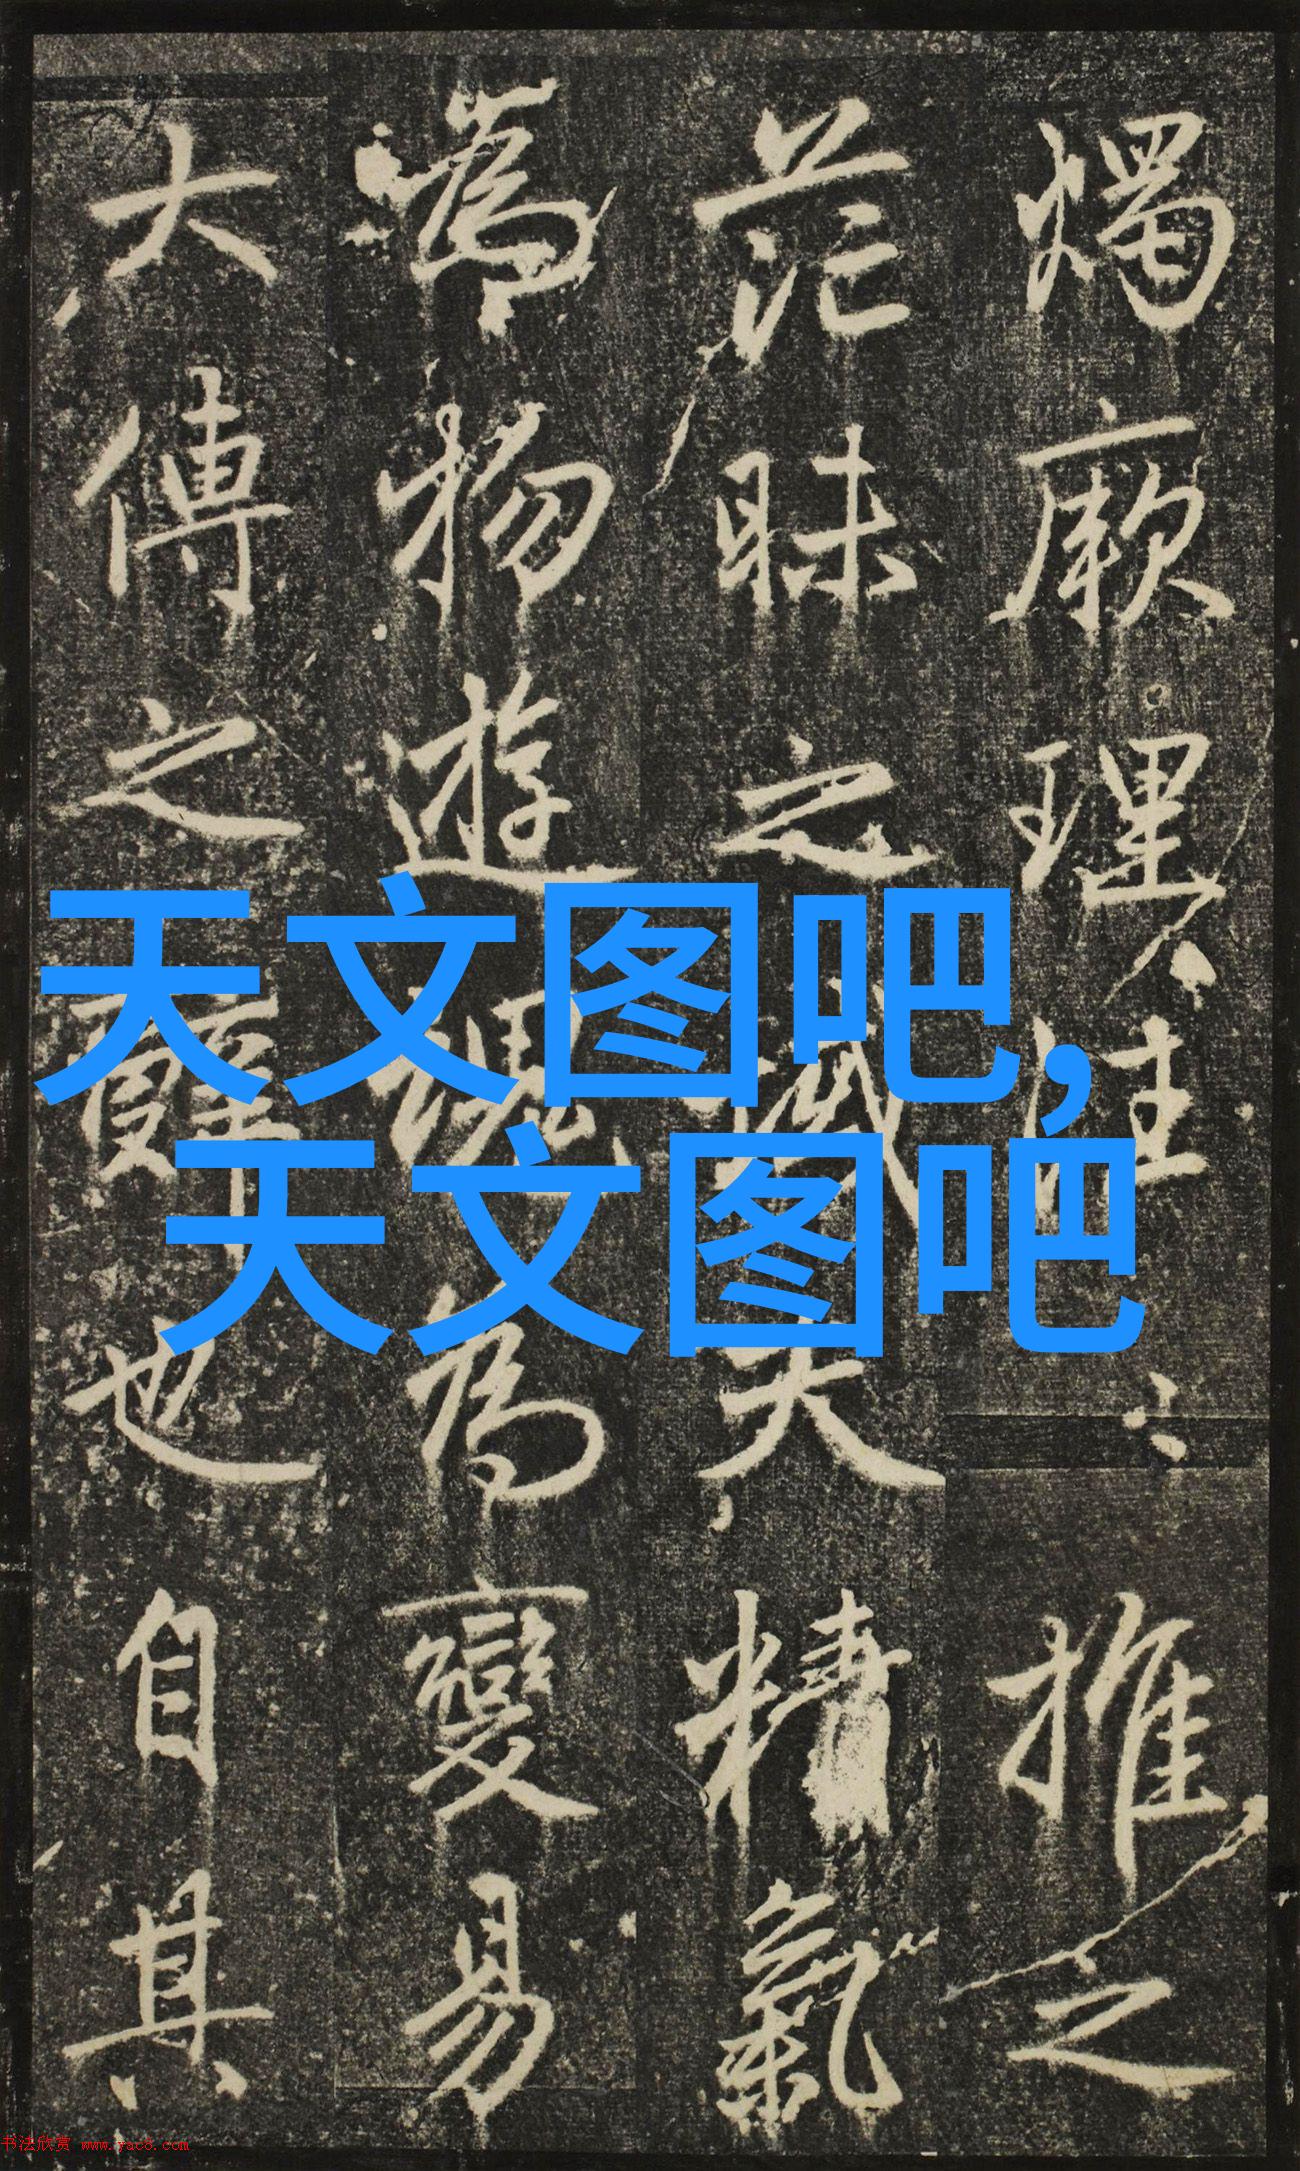 燭厥理推之
茫昧之域矣精氣
為物遊魂為變易
大傳之辭也自其
天文图吧,
天文图吧
书法欣赏 www.yac8.com